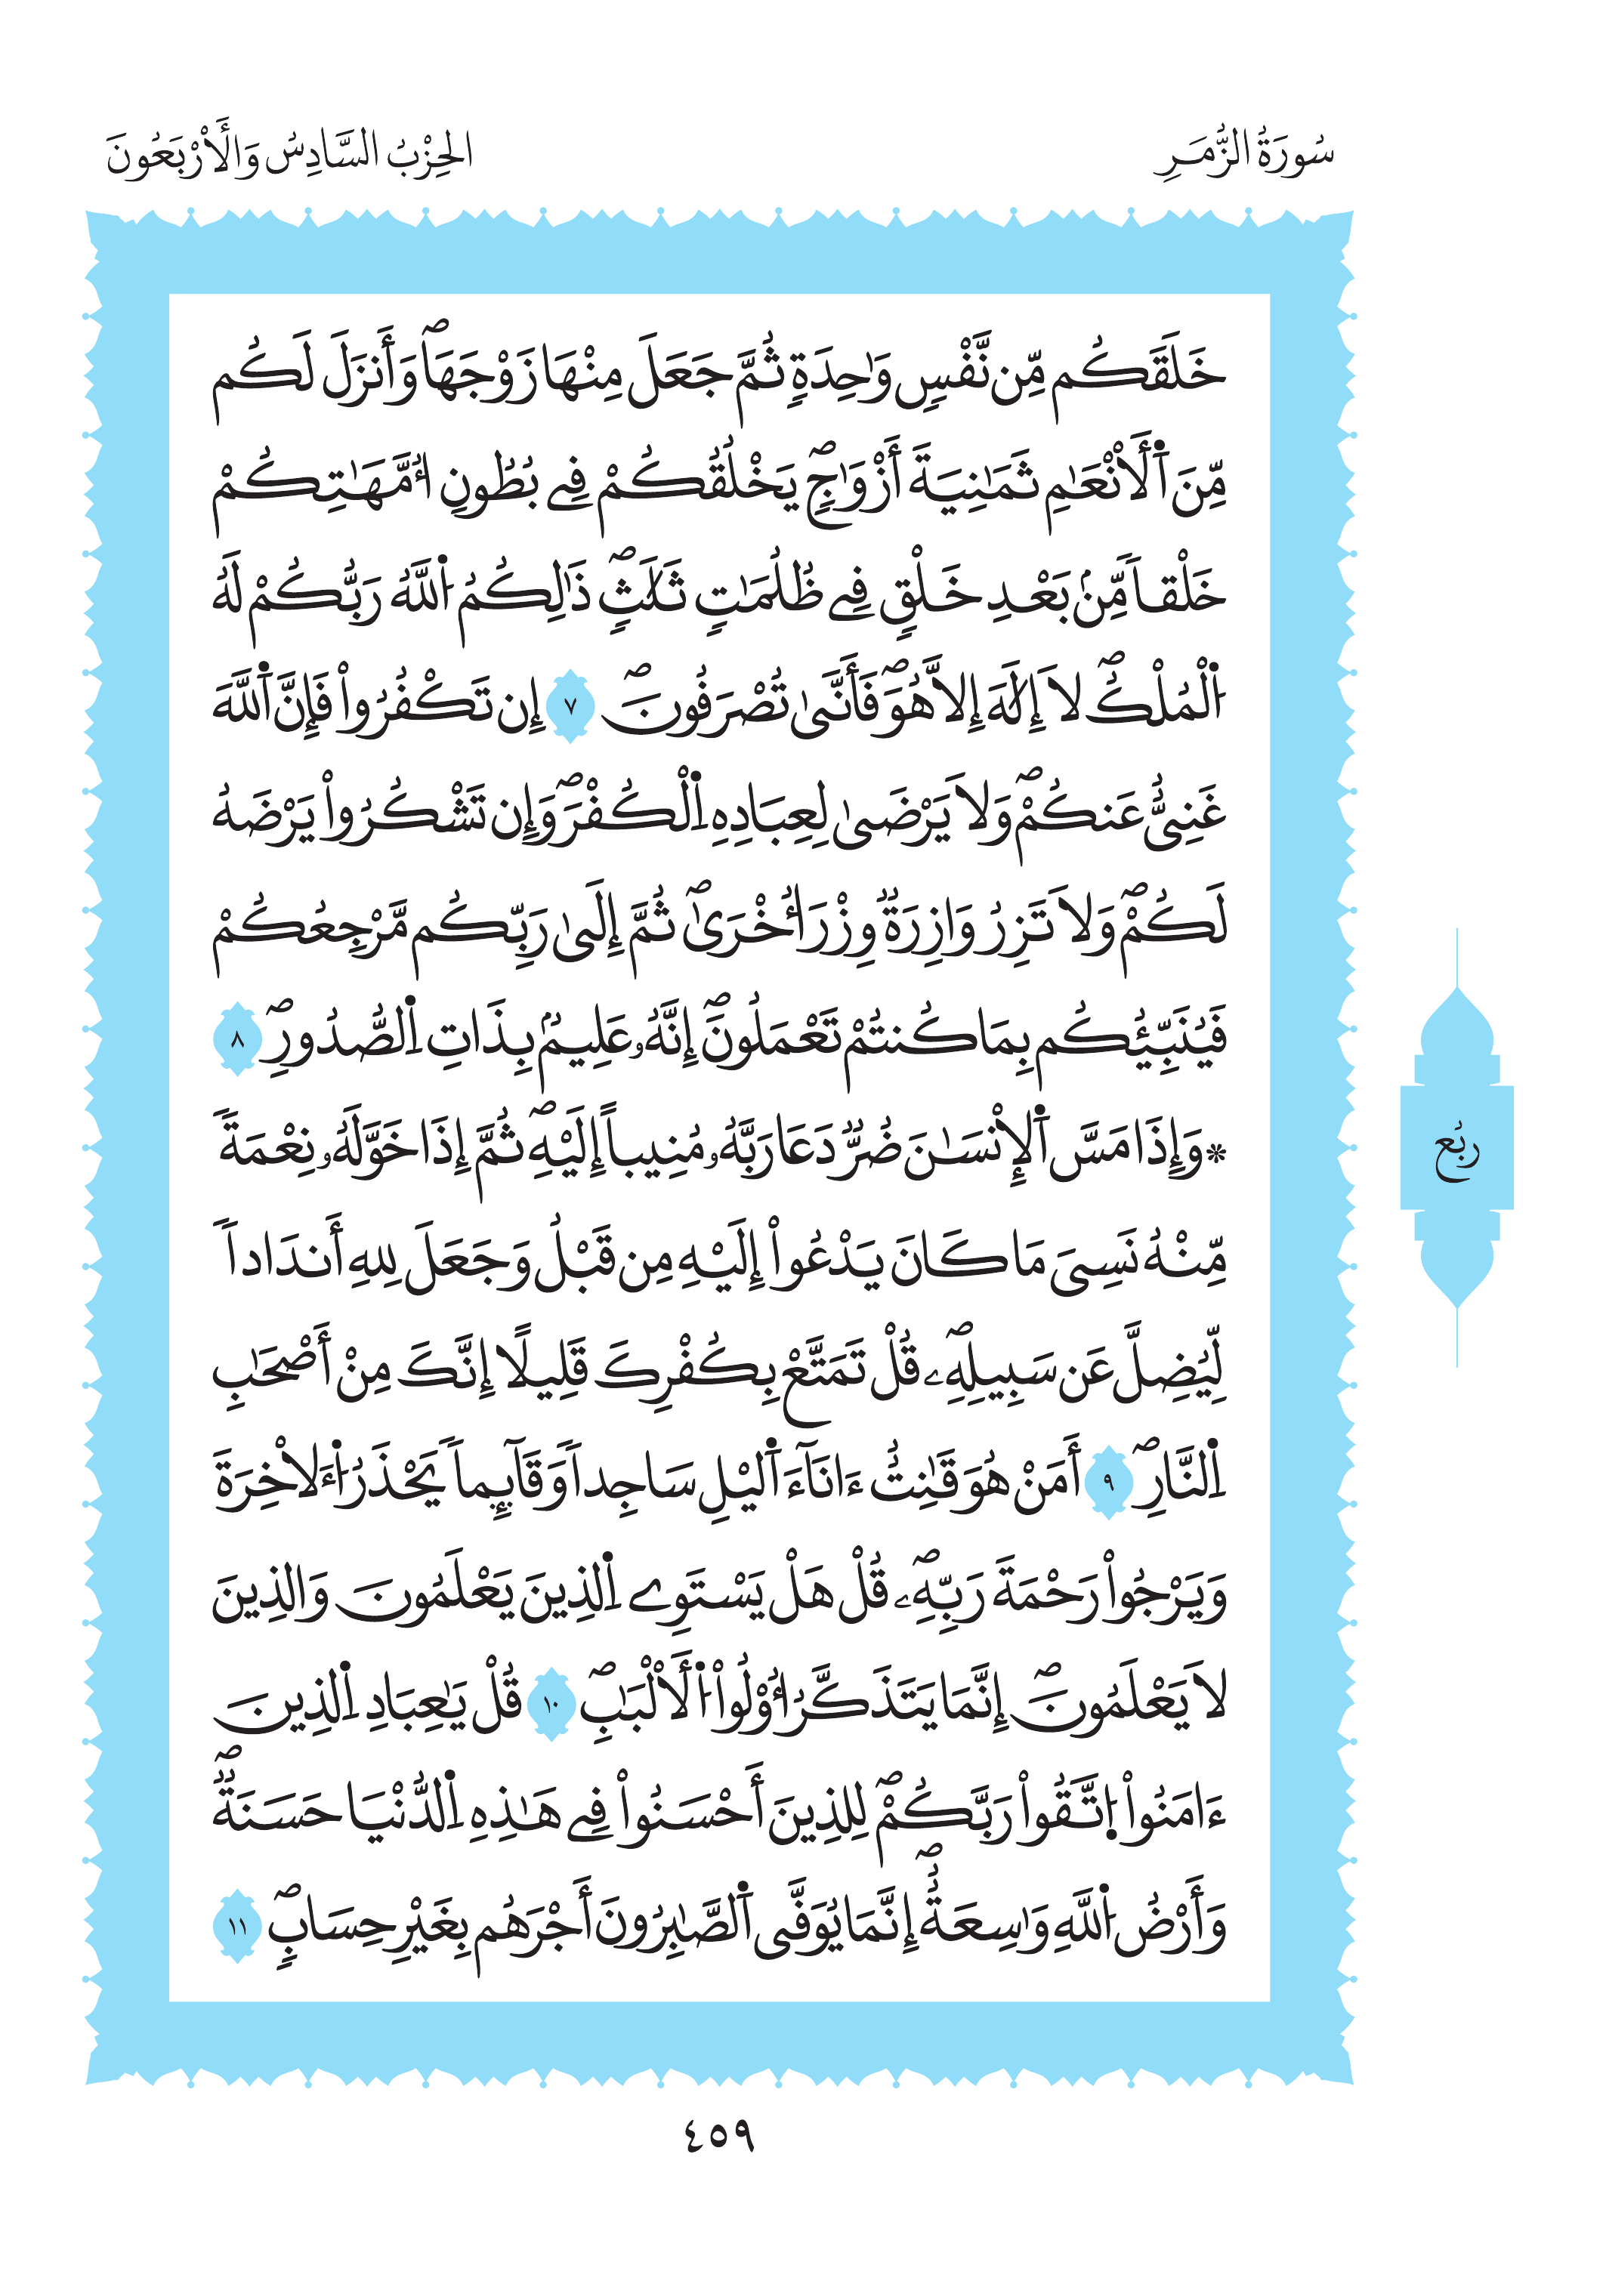 سُورَةُ الزُّمَرِ
الحِزْبُ السَّادِسُ وَالْأَرْبَعُونَ
خَلَقَكُم مِّن نَّفْسٖ وَٰحِدَةٖ ثُمَّ جَعَلَ مِنْهَا زَوْجَهَاۖ وَأَنزَلَ لَكُم
مِّنَ اَ۬لَانْعَٰمِ ثَمَٰنِيَةَ أَزْوَٰجٖۖ يَخْلُقُكُمْ فِے بُطُونِ أُمَّهَٰتِكُمْ
خَلْقاٗ مِّنۢ بَعْدِ خَلْقٖ فِے ظُلُمَٰتٖ ثَلَٰثٖۖ ذَٰلِكُمُ اُ۬للَّهُ رَبُّكُمْ لَهُ
اُ۬لْمُلْكُۖ لَا إِلَٰهَ إِلَّا هُوَۖ فَأَنَّىٰ تُصْرَفُونَۖ ٧ إِن تَكْفُرُواْ فَإِنَّ اَ۬للَّهَ
غَنِيٌّ عَنكُمْۖ وَلَا يَرْضَىٰ لِعِبَادِهِ اِ۬لْكُفْرَۖ وَإِن تَشْكُرُواْ يَرْضَهُ
لَكُمْۖ وَلَا تَزِرُ وَازِرَةٞ وِزْرَ أُخْرَىٰۖ ثُمَّ إِلَىٰ رَبِّكُم مَّرْجِعُكُمْ
فَيُنَبِّئُكُم بِمَا كُنتُمْ تَعْمَلُونَۖ إِنَّهُۥ عَلِيمُۢ بِذَاتِ اِ۬لصُّدُورِۖ ٨
۞ وَإِذَا مَسَّ اَ۬لْإِنسَٰنَ ضُرّٞ دَعَا رَبَّهُۥ مُنِيباً إِلَيْهِۖ ثُمَّ إِذَا خَوَّلَهُۥ نِعْمَةٗ
مِّنْهُ نَسِىَ مَا كَانَ يَدْعُواْ إِلَيْهِ مِن قَبْلُ وَجَعَلَ لِلهِ أَندَاداٗ
لِّيُضِلَّ عَن سَبِيلِهِۦۖ قُلْ تَمَتَّعْ بِكُفْرِكَ قَلِيلًا إِنَّكَ مِنْ أَصْحَٰبِ
اِ۬لنَّارِۖ ٩ أَمَنْ هُوَ قَٰنِتٌ ءَانَآءَ اَ۬ليْلِ سَاجِداٗ وَقَآئِماٗ يَحْذَرُ اُ۬لَاخِرَةَ
وَيَرْجُواْ رَحْمَةَ رَبِّهِۦۖ قُلْ هَلْ يَسْتَوِے اِ۬لذِينَ يَعْلَمُونَ وَالذِينَ
لَا يَعْلَمُونَۖ إِنَّمَا يَتَذَكَّرُ أُوْلُواْ اُ۬لَالْبَٰبِۖ ١٠ قُلْ يَٰعِبَادِ اِ۬لذِينَ
ءَامَنُواْ اُ۪تَّقُواْ رَبَّكُمْۖ لِلذِينَ أَحْسَنُواْ فِے هَٰذِهِ اِ۬لدُّنْيَا حَسَنَةٞۖ
وَأَرْضُ اُ۬للَّهِ وَٰسِعَةٌۖ إِنَّمَا يُوَفَّى اَ۬لصَّٰبِرُونَ أَجْرَهُم بِغَيْرِ حِسَابٖۖ ١١
رُبُع
٤٥٩